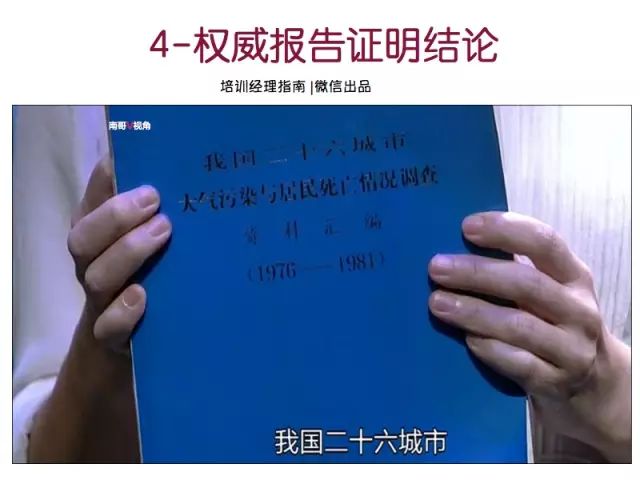 4-权威报告证明结论
培训经理指南 |微信出品
南哥V视角
我国二十六城市
大气污染与居民死亡情况调查
资料汇编
(1976——1981)
我国二十六城市